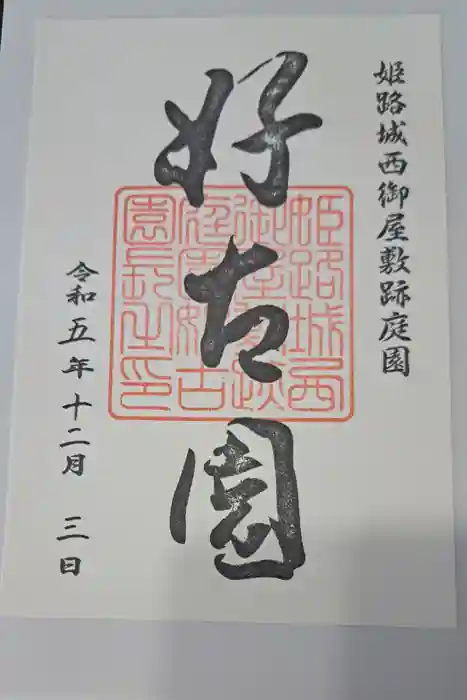 姫路城西御屋敷跡庭園
好古園
姫路城西
御屋敷跡
庭園好古
園長之印
令和五年十二月 三日